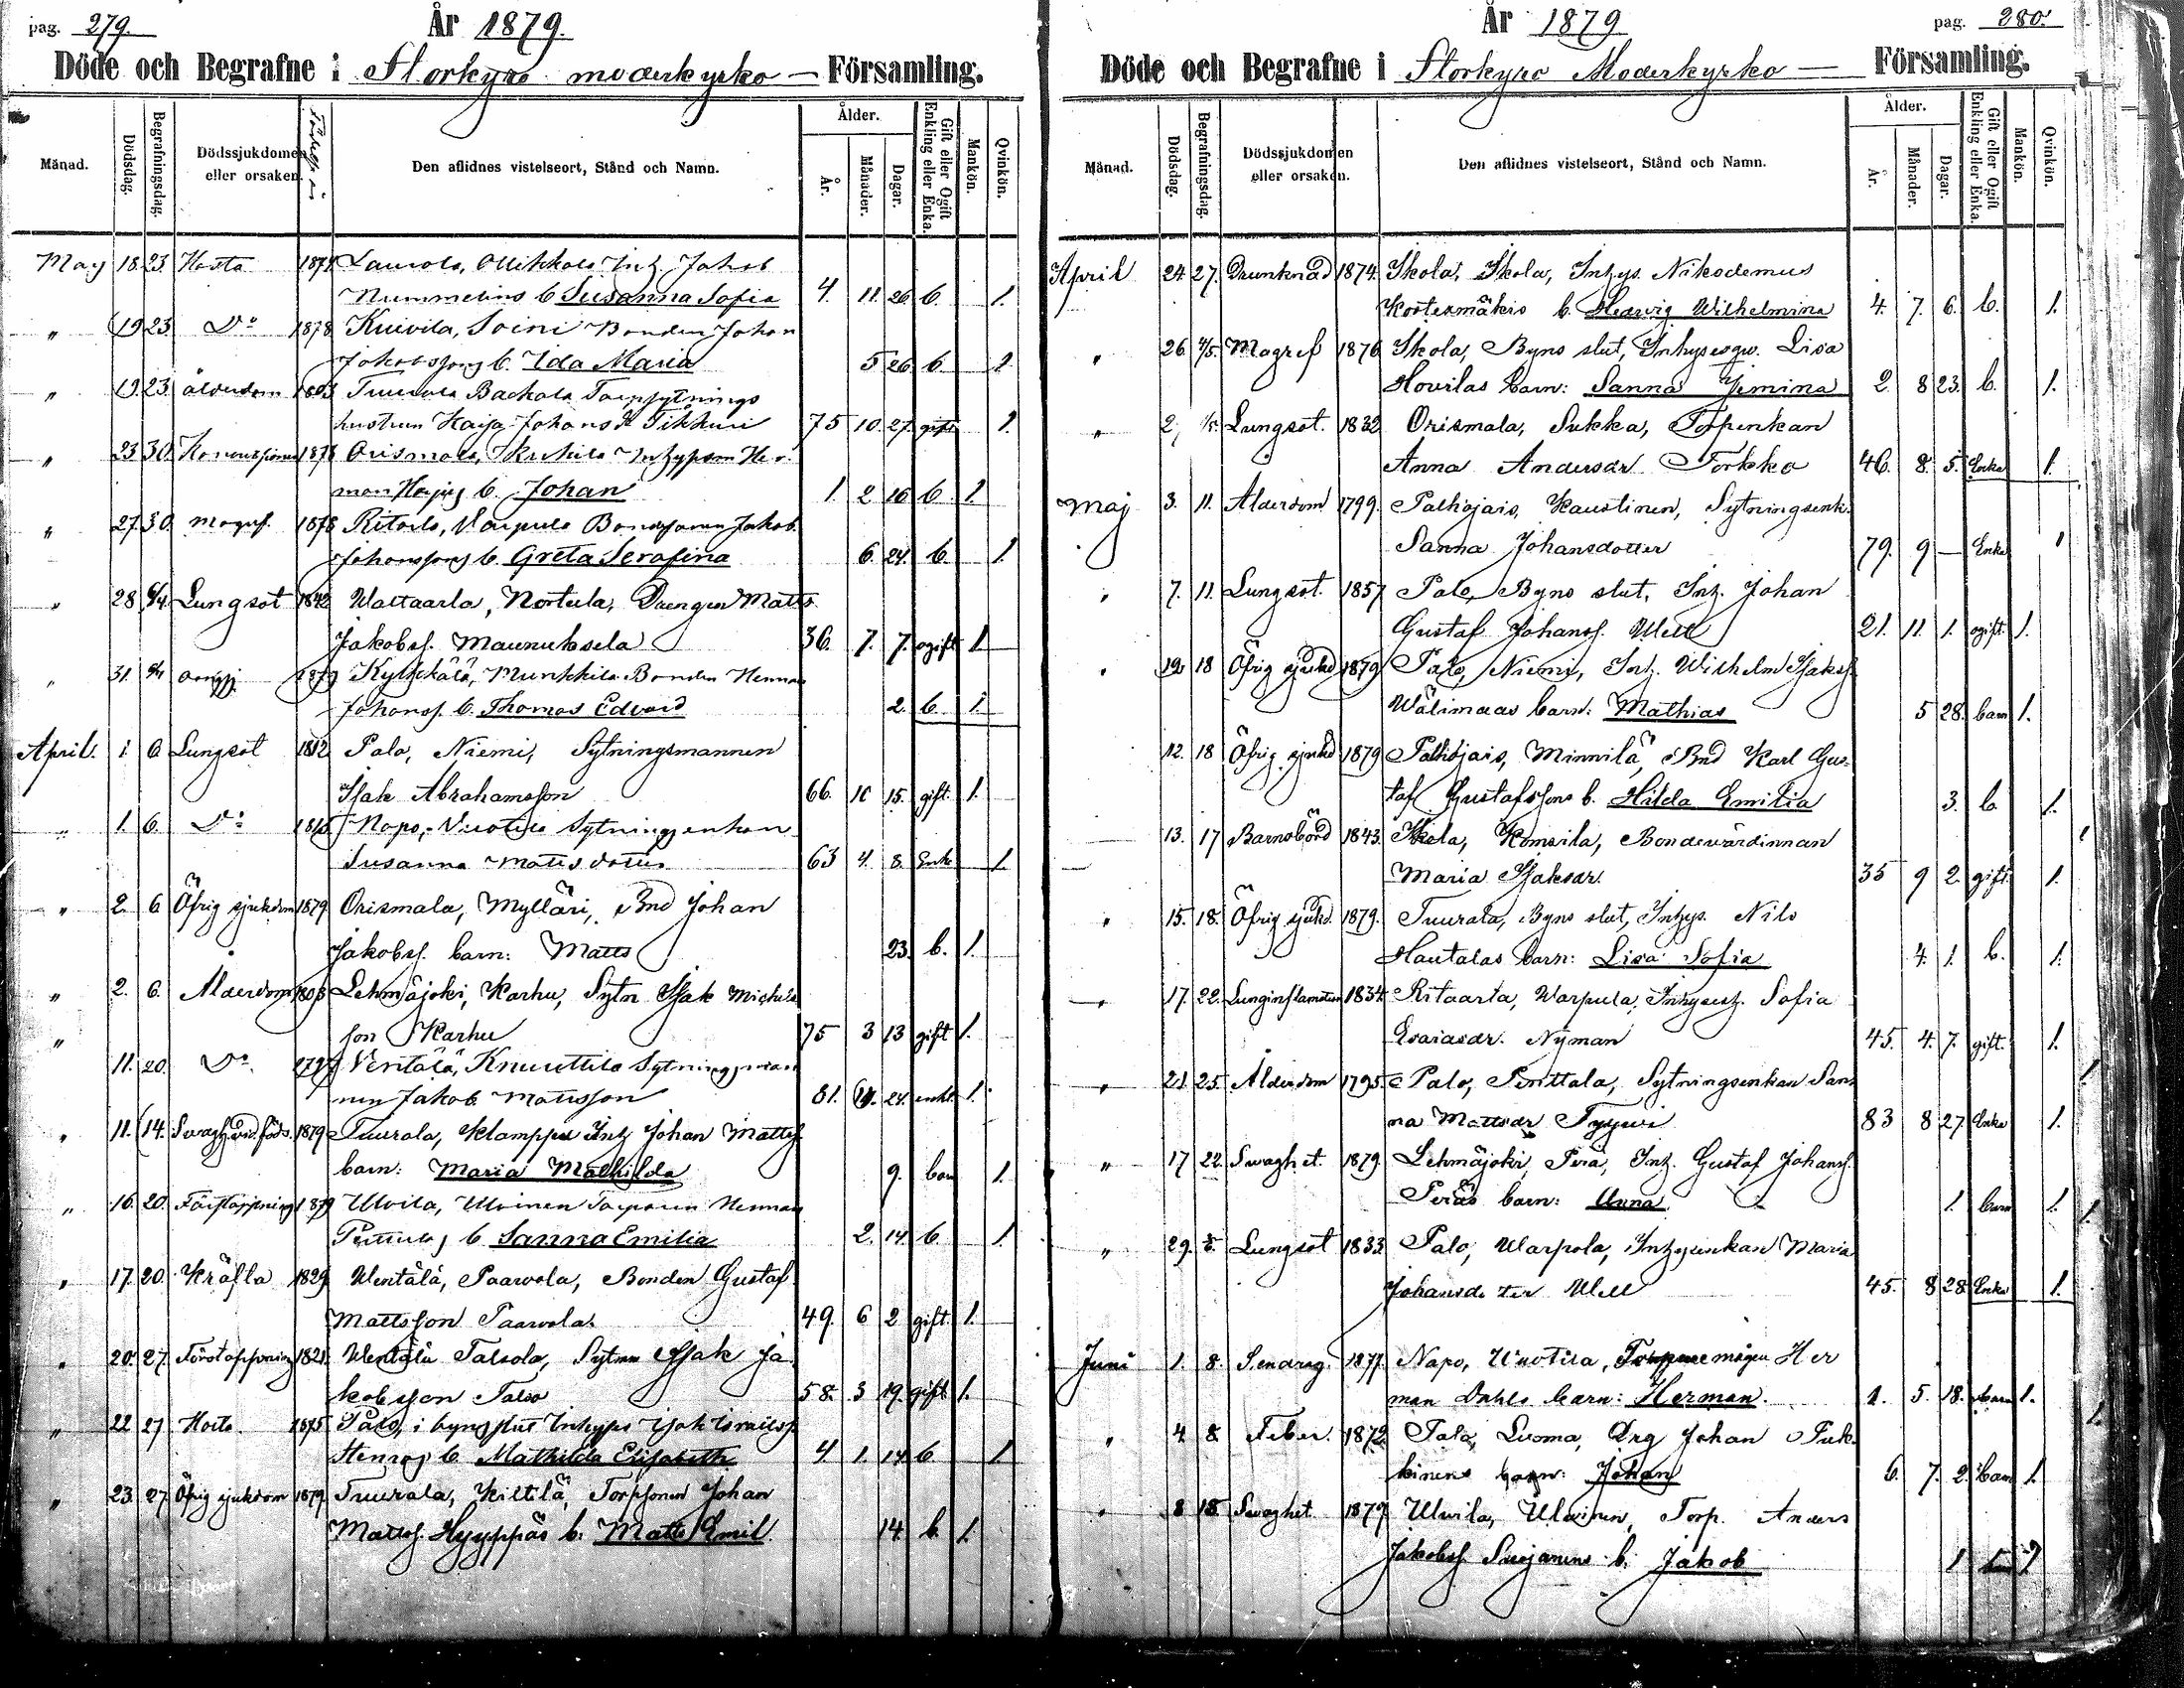 pag. 279.
År 1879.
Döde och Begrafne i Storkyro moderkyrko — Församling.
Månad. Dödsdag. Begrafningsdag. Dödssjukdomen eller orsaken. Den aflidnes vistelseort, Stånd och Namn. Ålder. År. Månader. Dagar. Gift eller Ogift Enkling eller Enka. Mankön. Qvinkön.
May 18. 23. Hosta Laurola, Ollikkala Inh. Jakob
Nummelins b Susanna Sofia 4. 11. 26 b. 1.
" 19 23 Do 1878 Kuivila, Soini Bonden Johan
Jakobssons b. Ida Maria 5 26 b 1.
" 19. 23 ålderdom 1803 Tuurala Backala Torpsytnings
hustrun Kaisa Johansdr Tikkuri 75 10. 27 gift 1.
" 23 30. Orismala,
man b. Johan 1. 2 16 b 1.
" 27. 30. magref. 1878 Ritaala, Warpula Jakob
Johanssons b. Greta Serafina 6. 24. b. 1.
" 28 6/4. Lungsot 1842 Wattaarla, Nortula, Drengen Matts
Jakobss. Maunuksela 36. 7. 7. ogift 1.
" 31. 6/4 1879 Kylkkälä, Munkkila Bonden Herman
Johanss. b. Thomas Edvard 2. b 1.
April. 1. 6 Lungsot 1812 Palo, Niemi, Sytningsmannen
Isak Abrahamsson 66. 10 15. gift. 1.
" 1. 6. Do 1815 Napo, Uuotila Sytningsenkan
Susanna Mattsdotter 63 4. 8. Enka 1
" 2. 6 Öfrig sjukdom 1879 Orismala, Mylläri, Bnd Johan
Jakobss. barn: Matts 23. b. 1.
" 2. 6. Ålderdom 1803 Lehmäjoki, Karhu, Sytn Isak Michels
son Karhu 75 3 13 gift 1.
" 11. 20. Do 1797 Ventälä, Knuuttila Sytningsman
nen Jakob Mattsson 81. 24. enkl. 1.
" 11. 14. Svaghet vid föds. 1879 Tuurala, Klamppu Inh Johan Mattss.
barn: Maria Mathilda 9. barn 1.
" 16. 20. Förstoppning 1879 Ulvila, Ulvinen Torparen Herman
b Sanna Emilia 2. 14. b 1.
" 17. 20. Kräfta 1829 Wentälä, Paavola, Bonden Gustaf
Mattsson Paavola. 49. 6 2 gift. 1.
" 20. 27. Förstoppning 1821. Wentälä Talsola, Sytn Isak Ja
kobsson Talso 58. 3 19. gift. 1.
" 22 27 Hosta. 1875 Palo, i byns slut Inhyses Isak Israelss.
b Mathilda Elisabeth 4 1. 14 b 1
" 23. 27. Öfrig sjukdom 1879 Tuurala, Kiltilä, Torpsonen Johan
Mattss. Hyyppäs b. Matts Emil 14. b. 1.
År 1879
pag. 280.
Döde och Begrafne i Storkyro Moderkyrko — Församling.
Månad. Dödsdag. Begrafningsdag. Dödssjukdomen eller orsaken. Den aflidnes vistelseort, Stånd och Namn. Ålder. År. Månader. Dagar. Gift eller Ogift Enkling eller Enka. Mankön. Qvinkön.
April 24. 27. Drunknad 1874. Ikola, Ikola, Inhys. Nikodemus
Kortesmäkis b. Hedvig Wilhelmina 4. 7. 6. b. 1.
" 26. 4/5. Magref 1876 Ikola, Byns slut, Inhysesqv. Lisa
Hovilas barn: Sanna Jemina 2. 8 23. b. 1.
" 2, Lungsot. 1832 Orismala, Sukka, Torpenkan
Anna Andersdr. Torkko 46. 8. 5. Enka 1.
Maj 3. 11. Ålderdom 1799. Palhojais, Kaustinen, Sytningsenk.
Sanna Johansdotter 79. 9 — Enka 1
" 7. 11. Lungsot. 1857 Palo, Byns slut, Inh. Johan
Gustaf Johanss. Well 21. 11. 1. ogift. 1.
" 12. 18 Öfrig sjukd 1879 Palo, Niemi, Inh. Wilhelm Isakss.
Wälimaas barn: Mathias 5 28. barn 1.
12. 18 Öfrig sjukd 1879 Palhojais, Minnilä, Bnd Karl Gus-
taf Gustafssons b. Hilda Emilia 3. b. 1.
13. 17 Barnsbörd 1843. Ikola, Komsila, Bondevärdinnan
Maria Isaksdr. 35 9 2. gift. 1.
" 15. 18. Öfrig sjukd. 1879. Tuurala, Byns slut, Inhys. Nils
Hautalas barn: Lisa Sofia 4. 1. b. 1.
" 17. 22. Lunginflamation 1834 Ritaarla, Warpula, Sofia
Esaiasdr. Nyman 45. 4. 7. gift. 1.
" 21 25. Ålderdom 1795. Palo, Penttala, Sytningsenkan San
na Mattsdr 83 8 27 Enka 1.
" 17 22. Svaghet. 1879. Lehmäjoki Perä, Inh. Gustaf Johanss.
Peräs barn: Anna 1. barn 1.
" 29. Lungsot 1833 Palo, Warpola, Inhysenkan Maria
Johansdotter Well 45. 8 28 Enka 1.
Juni 1. 8. Sendrag. 1877. Napo, Uuotila, mågen Her
man Dahls barn: Herman. 1. 5. 18. barn 1.
" 4. 8. Feber. 1872 Palo, Luoma, Drg Johan Puk
kinens barn: Johan 6. 7. 2. barn 1.
" 8 15. Svaghet 1879 Ulvila, Ulvinen, Torp. Anders
Jakobss. b. Jakob 1